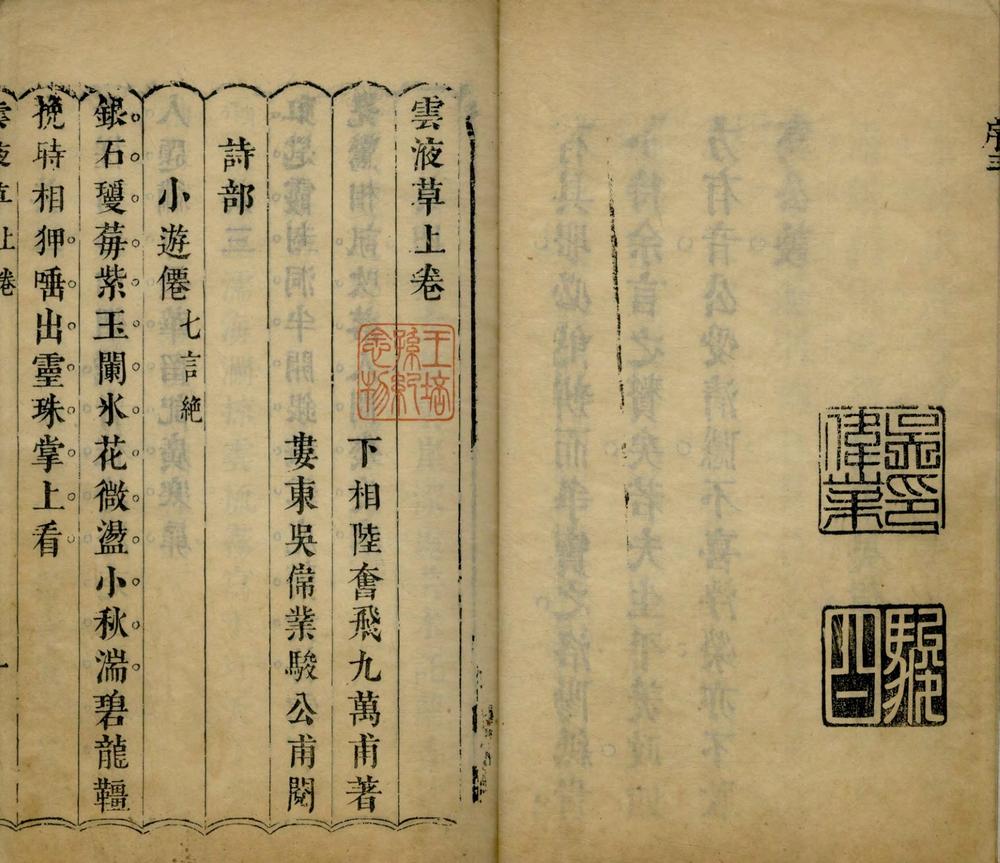 序三
吳偉業印
駿公
雲液草上卷
王培孫紀念物
下相陸奮飛九萬甫著
婁東吳偉業駿公甫閱
詩部
小遊僊七言絶
銀石璎苺紫玉闌氷花微盪小秋湍碧龍韁
挽時相狎唾出靈珠掌上看
雲液草上卷 一